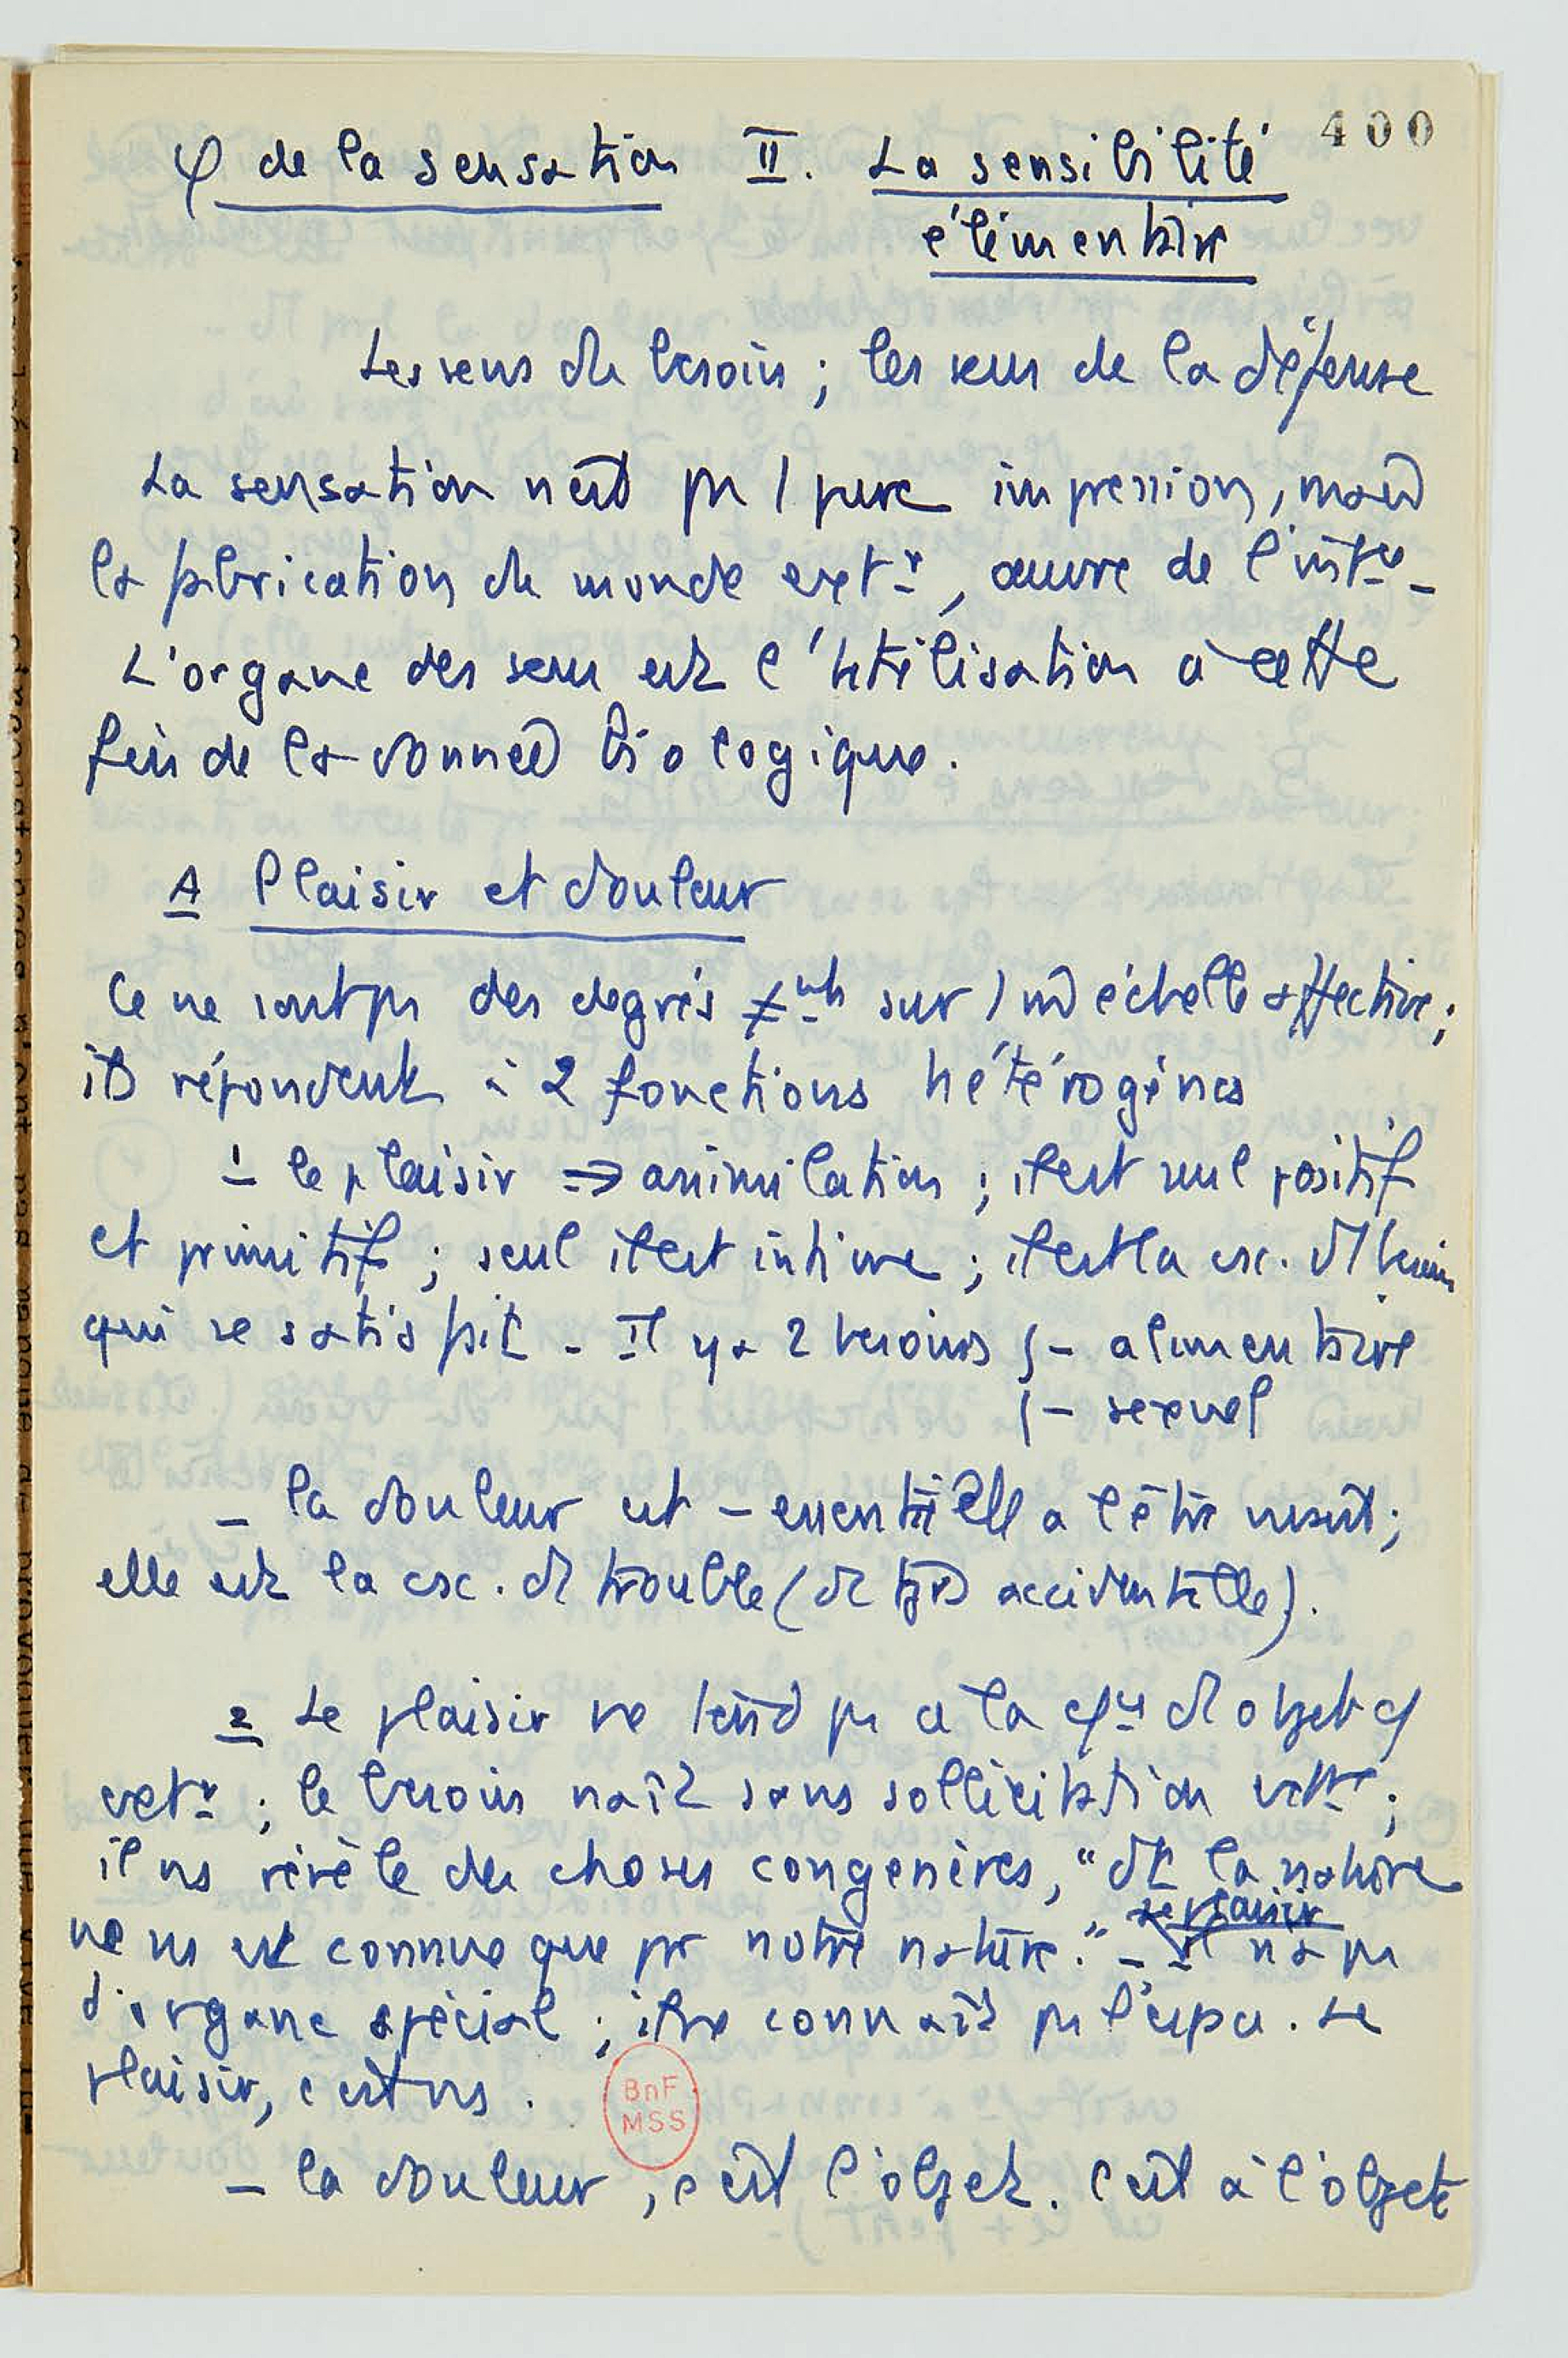 400
φ de la sensation II. La sensibilité
élémentaire
Les sens du besoin ; les sens de la défense
La sensation n'est pas 1 pure impression, mais
la fabrication du monde extr, œuvre de l'intce -
L'organe des sens est l'utilisation à cette
fin de la donnée biologique.
A Plaisir et douleur
Ce ne sont pas des degrés ≠nts sur 1 m̂ échelle affective ;
ils répondent à 2 fonctions hétérogènes
1 le plaisir => assimilation ; il est seul positif
et primitif ; seul il est intime ; il est la csc. d'1 besoin
qui se satisfait - Il y a 2 besoins { - alimentaire
{ - sexuel
- la douleur est - essentielle à l'être vivant ;
elle est la csc. d'1 trouble (de façon accidentelle).
2 Le plaisir ne tend pas à la d'1 objet
extr ; le besoin naît sans sollicitation extre ;
il ns révèle des choses congenères, "dt la nature
ne ns est connue que par notre nature." - Il n'a pas
le plaisir
d'organe spécial ; il ne connaît pas l'espace. Le
plaisir, c'est ns.
BnF
MSS
- la douleur, c'est l'objet. C'est à l'objet